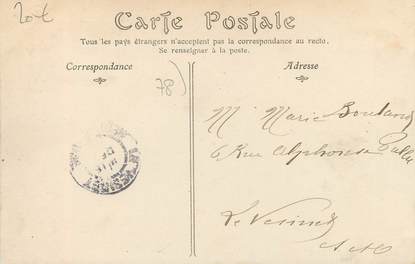 20€
Carte Postale
Tous les pays étrangers n'acceptent pas la correspondance au recto.
Se renseigner à la poste.
Correspondance
Adresse
78)
M Marie
6 Rue Alphonse Pallu
Le Vésinet
S. et O.
LE VESINET